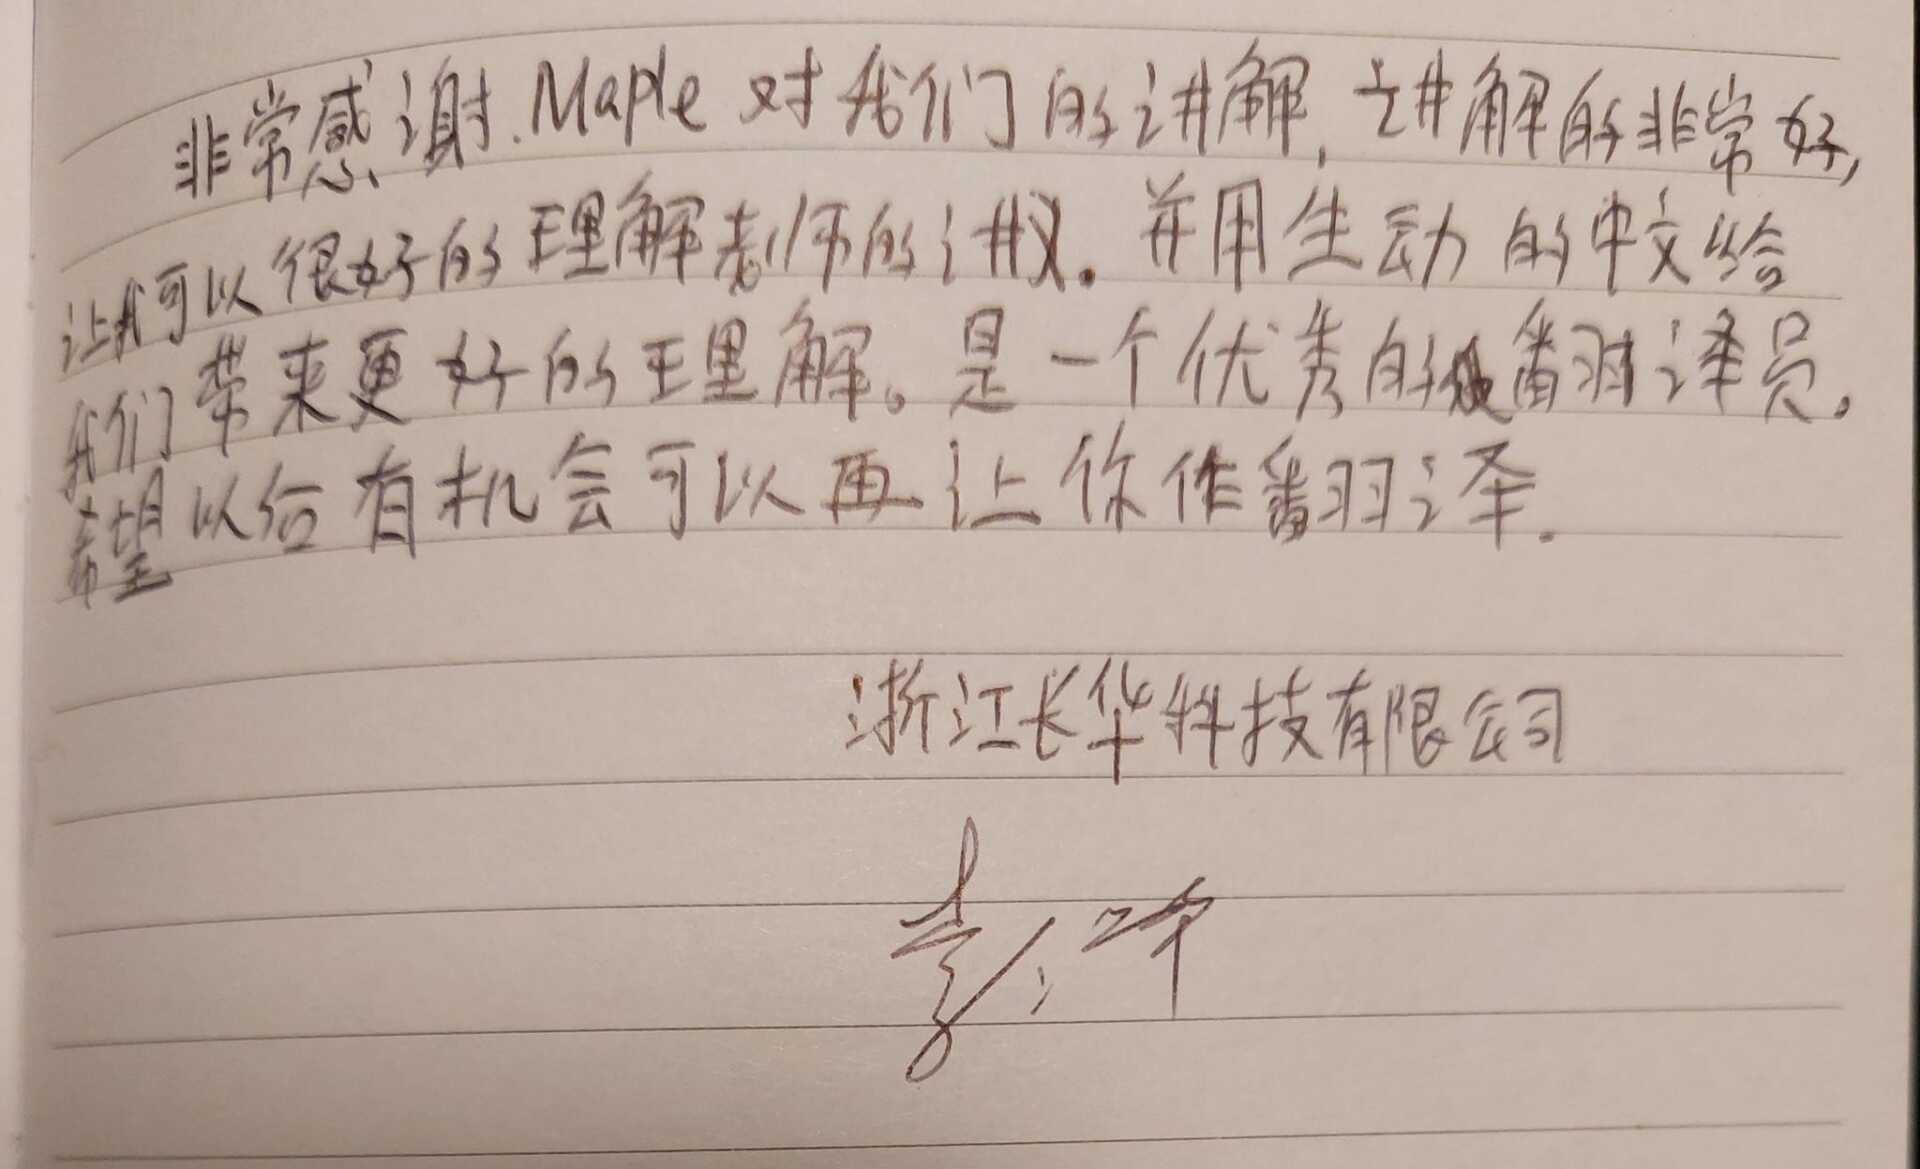 非常感谢.Maple对我们的讲解,讲解的非常好,
让我可以很好的理解老师的讲义.并用生动的中文给
我们带来更好的理解。是一个优秀的翻译员.
希望以后有机会可以再让你作翻译.
浙江长华科技有限公司